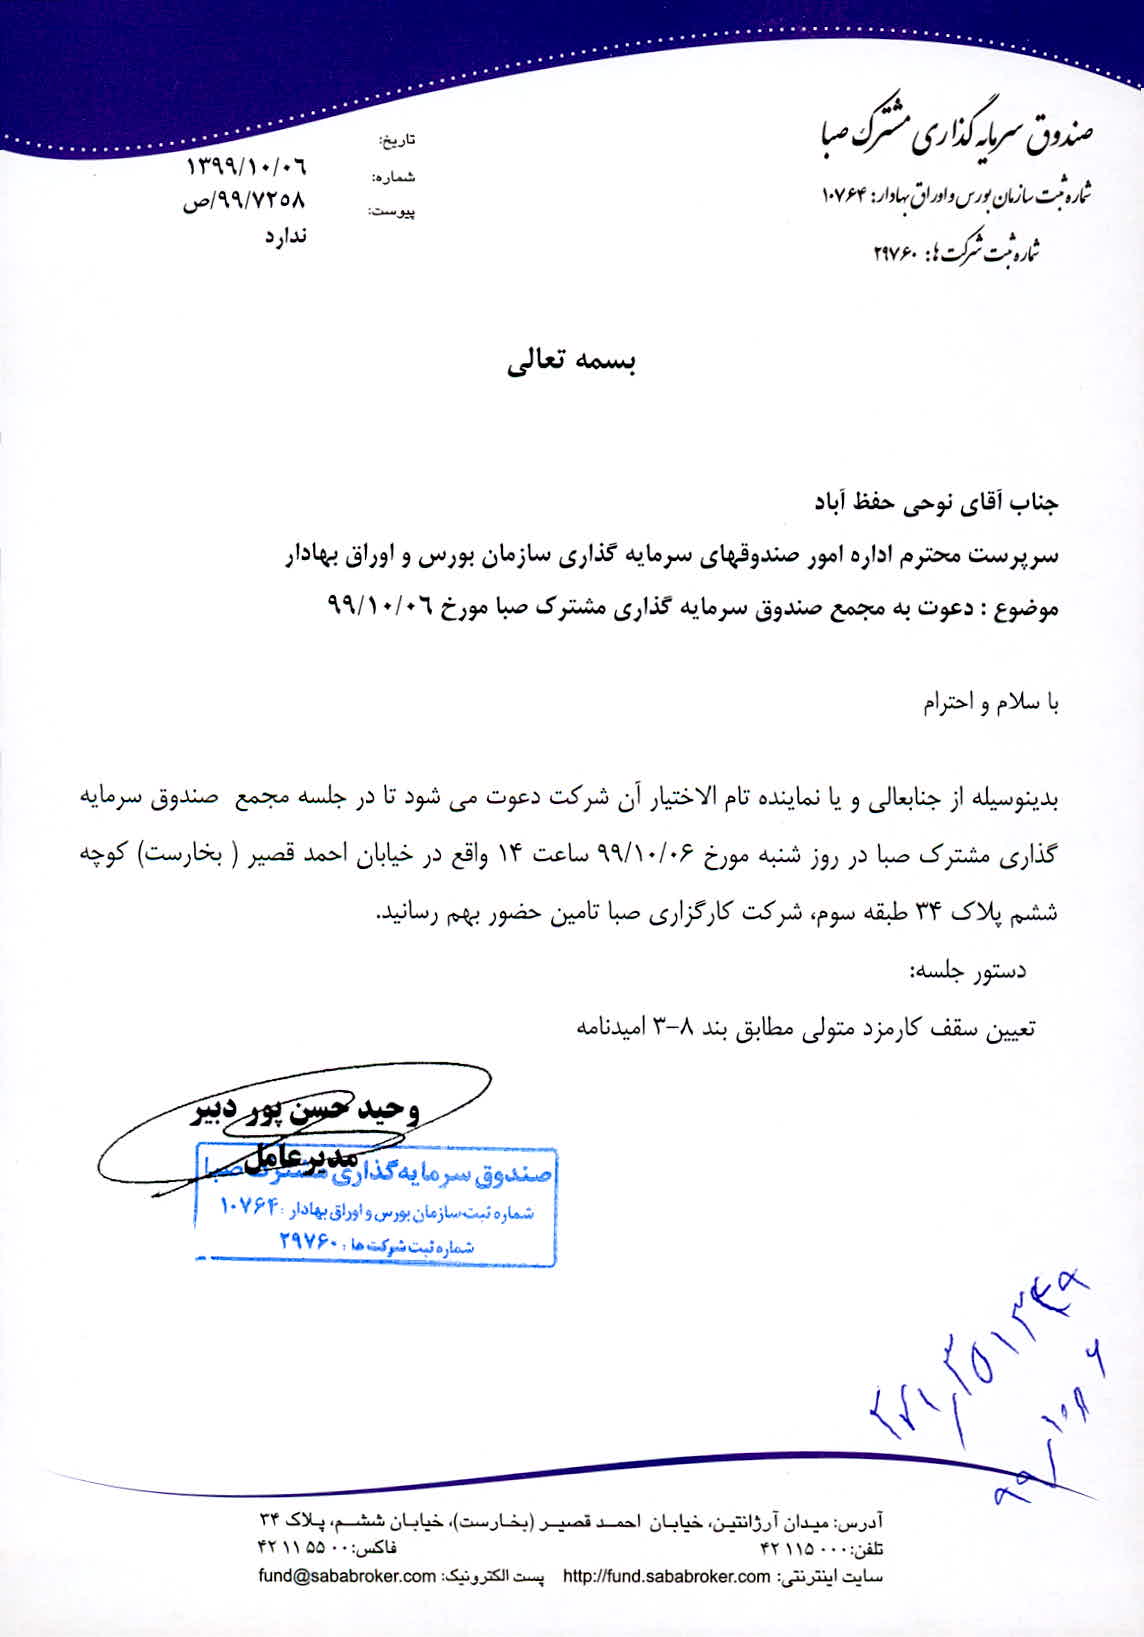 صندوق سرمایه گذاری مشترک صبا
شماره ثبت سازمان بورس و اوراق بهادار: ۱۰۷۶۴
شماره ثبت شرکت ها: ۲۹۷۶۰
تاریخ:
۱۳۹۹/۱۰/۰۶
شماره:
۹۹/۷۲۵۸/ص
پیوست:
ندارد
بسمه تعالی
جناب آقای نوحی حفظ آباد
سرپرست محترم اداره امور صندوقهای سرمایه گذاری سازمان بورس و اوراق بهادار
موضوع : دعوت به مجمع صندوق سرمایه گذاری مشترک صبا مورخ ۹۹/۱۰/۰۶
با سلام و احترام
بدینوسیله از جنابعالی و یا نماینده تام الاختیار آن شرکت دعوت می شود تا در جلسه مجمع صندوق سرمایه
گذاری مشترک صبا در روز شنبه مورخ ۹۹/۱۰/۰۶ ساعت ۱۴ واقع در خیابان احمد قصیر ( بخارست) کوچه
ششم پلاک ۳۴ طبقه سوم، شرکت کارگزاری صبا تامین حضور بهم رسانید.
دستور جلسه:
تعیین سقف کارمزد متولی مطابق بند ۸-۳ امیدنامه
وحید حسن پور دبیر
مدیرعامل
صندوق سرمایه گذاری مشترک صبا
شماره ثبت سازمان بورس و اوراق بهادار : ۱۰۷۶۴
شماره ثبت شرکت ها : ۲۹۷۶۰
آدرس: میدان آرژانتین، خیابان احمد قصیر (بخارست)، خیابان ششم، پلاک ۳۴
تلفن: ۴۲ ۱۱۵ ۰۰۰ فاکس: ۴۲ ۱۱ ۵۵ ۰۰
سایت اینترنتی: http://fund.sababroker.com پست الکترونیک: fund@sababroker.com